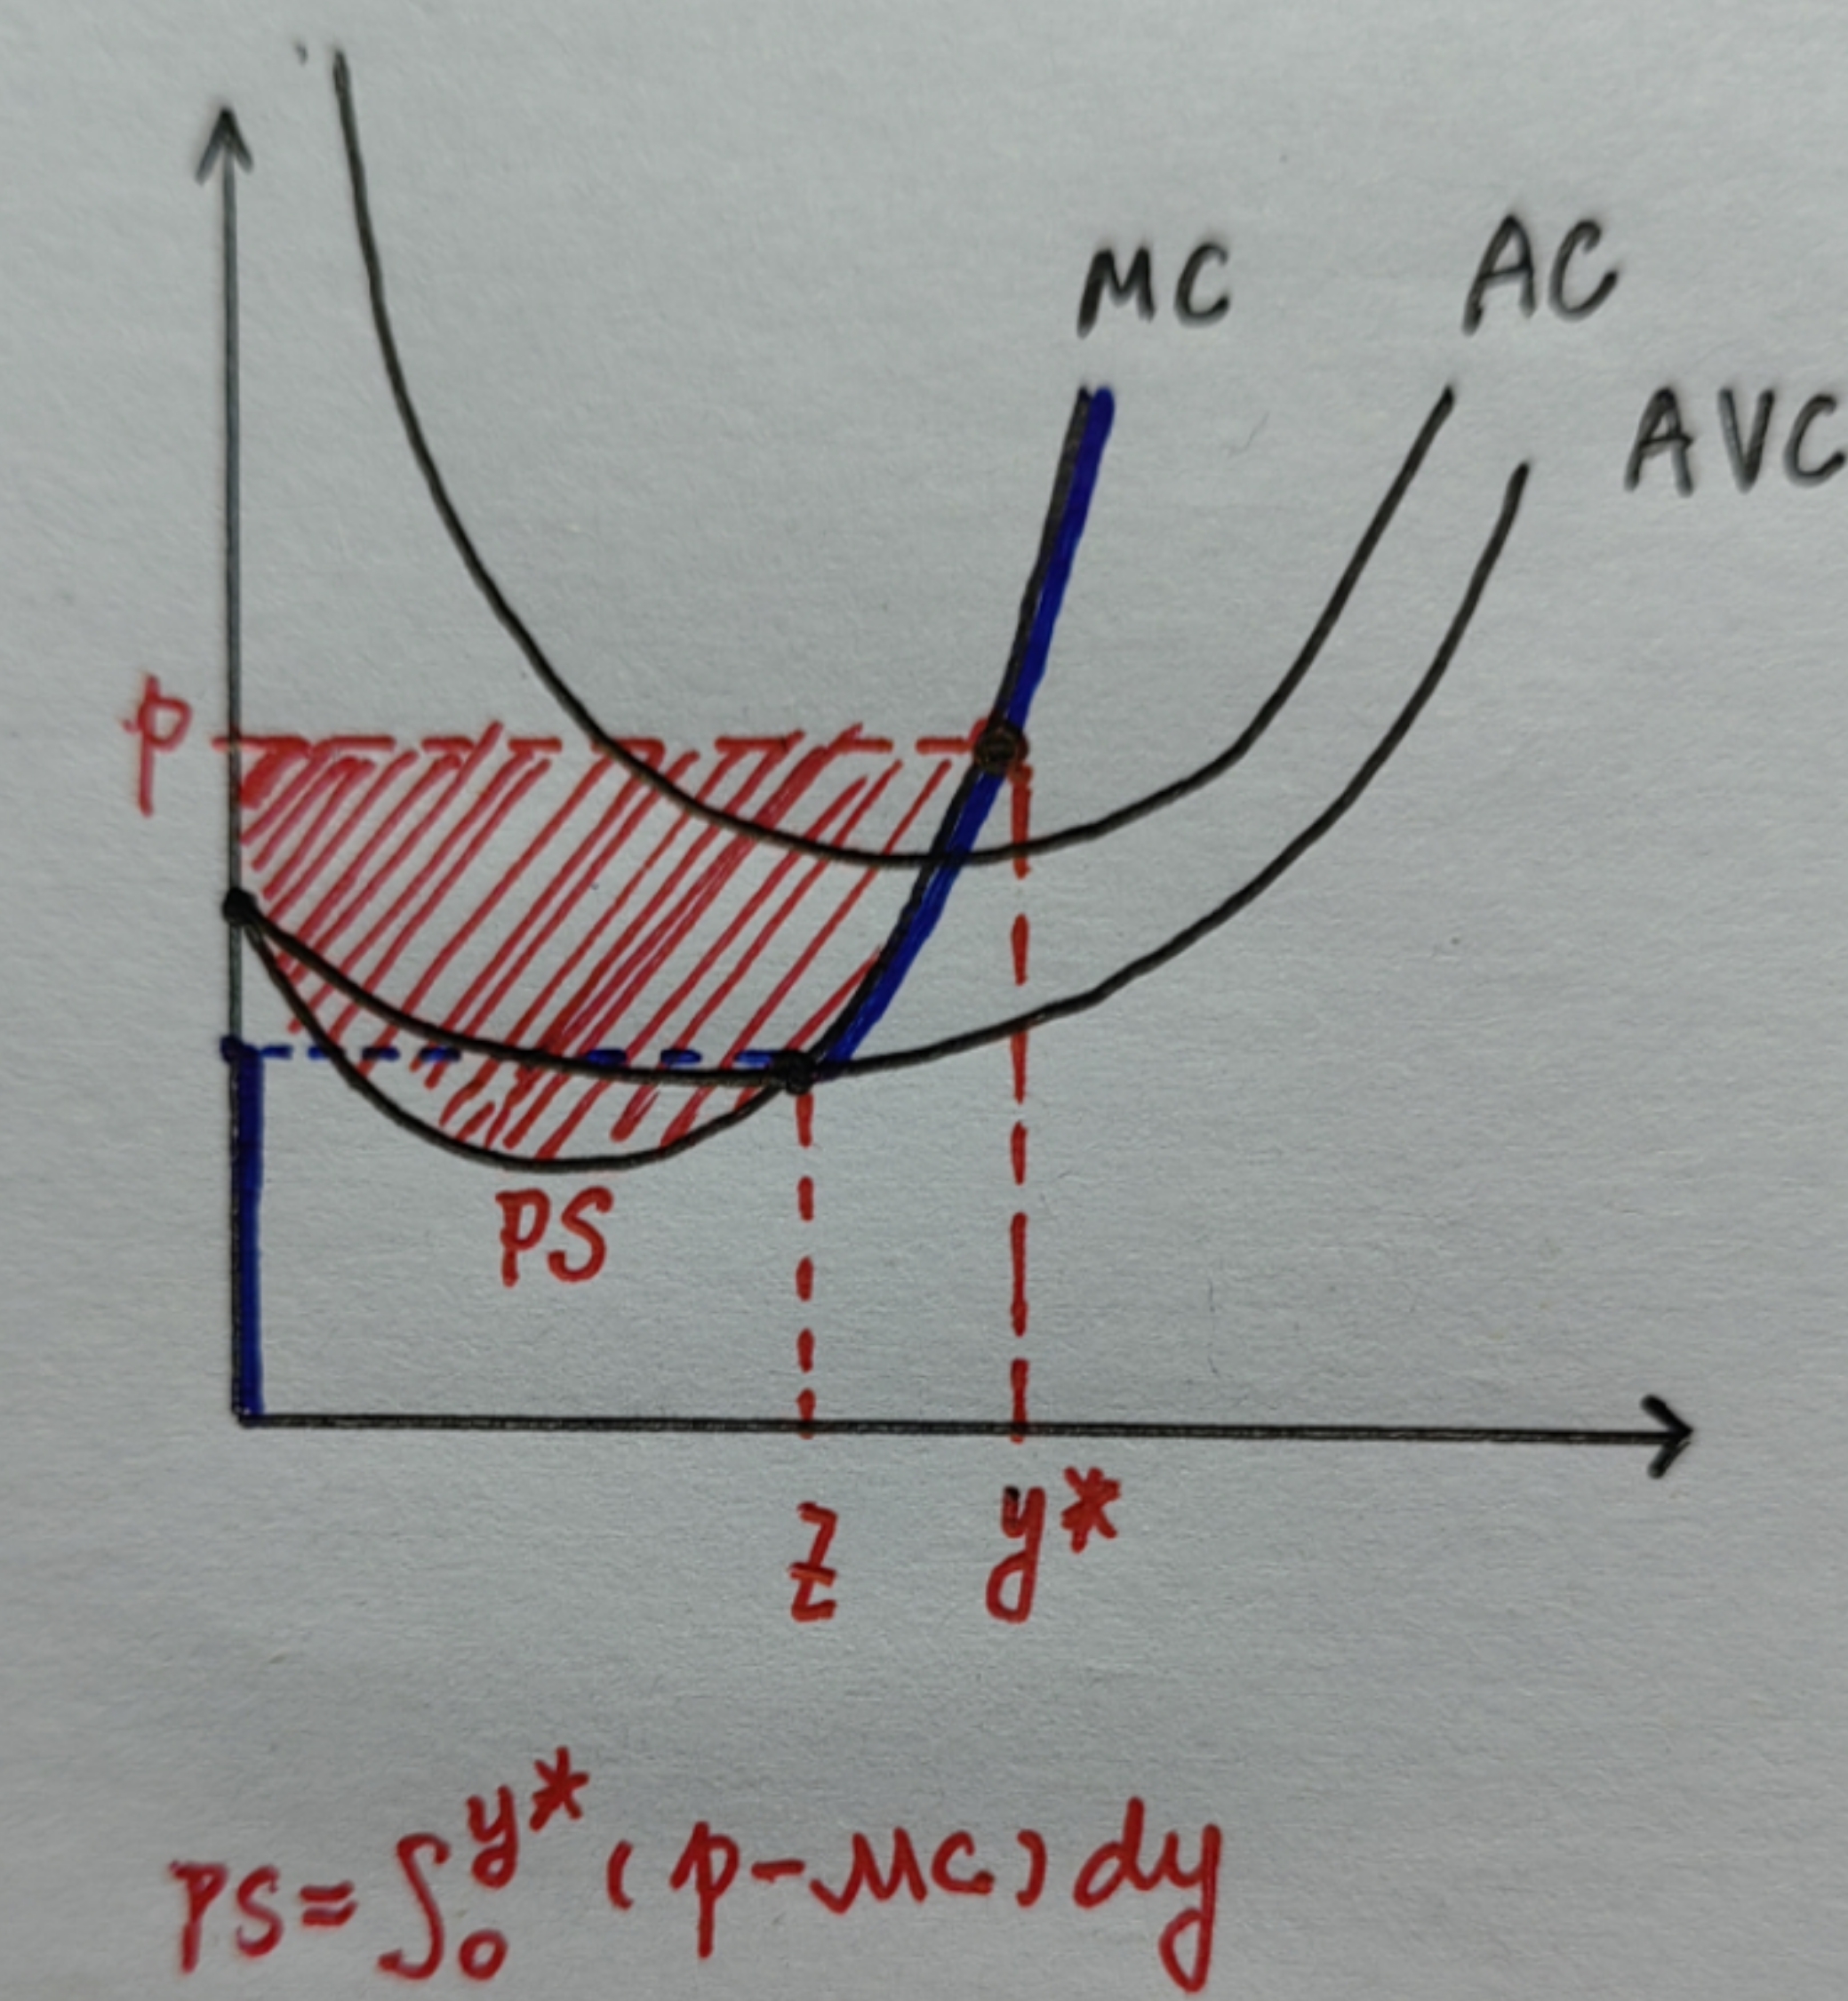 MC
AC
AVC
p
PS
z
y*
PS=∫₀^y* (p-MC)dy